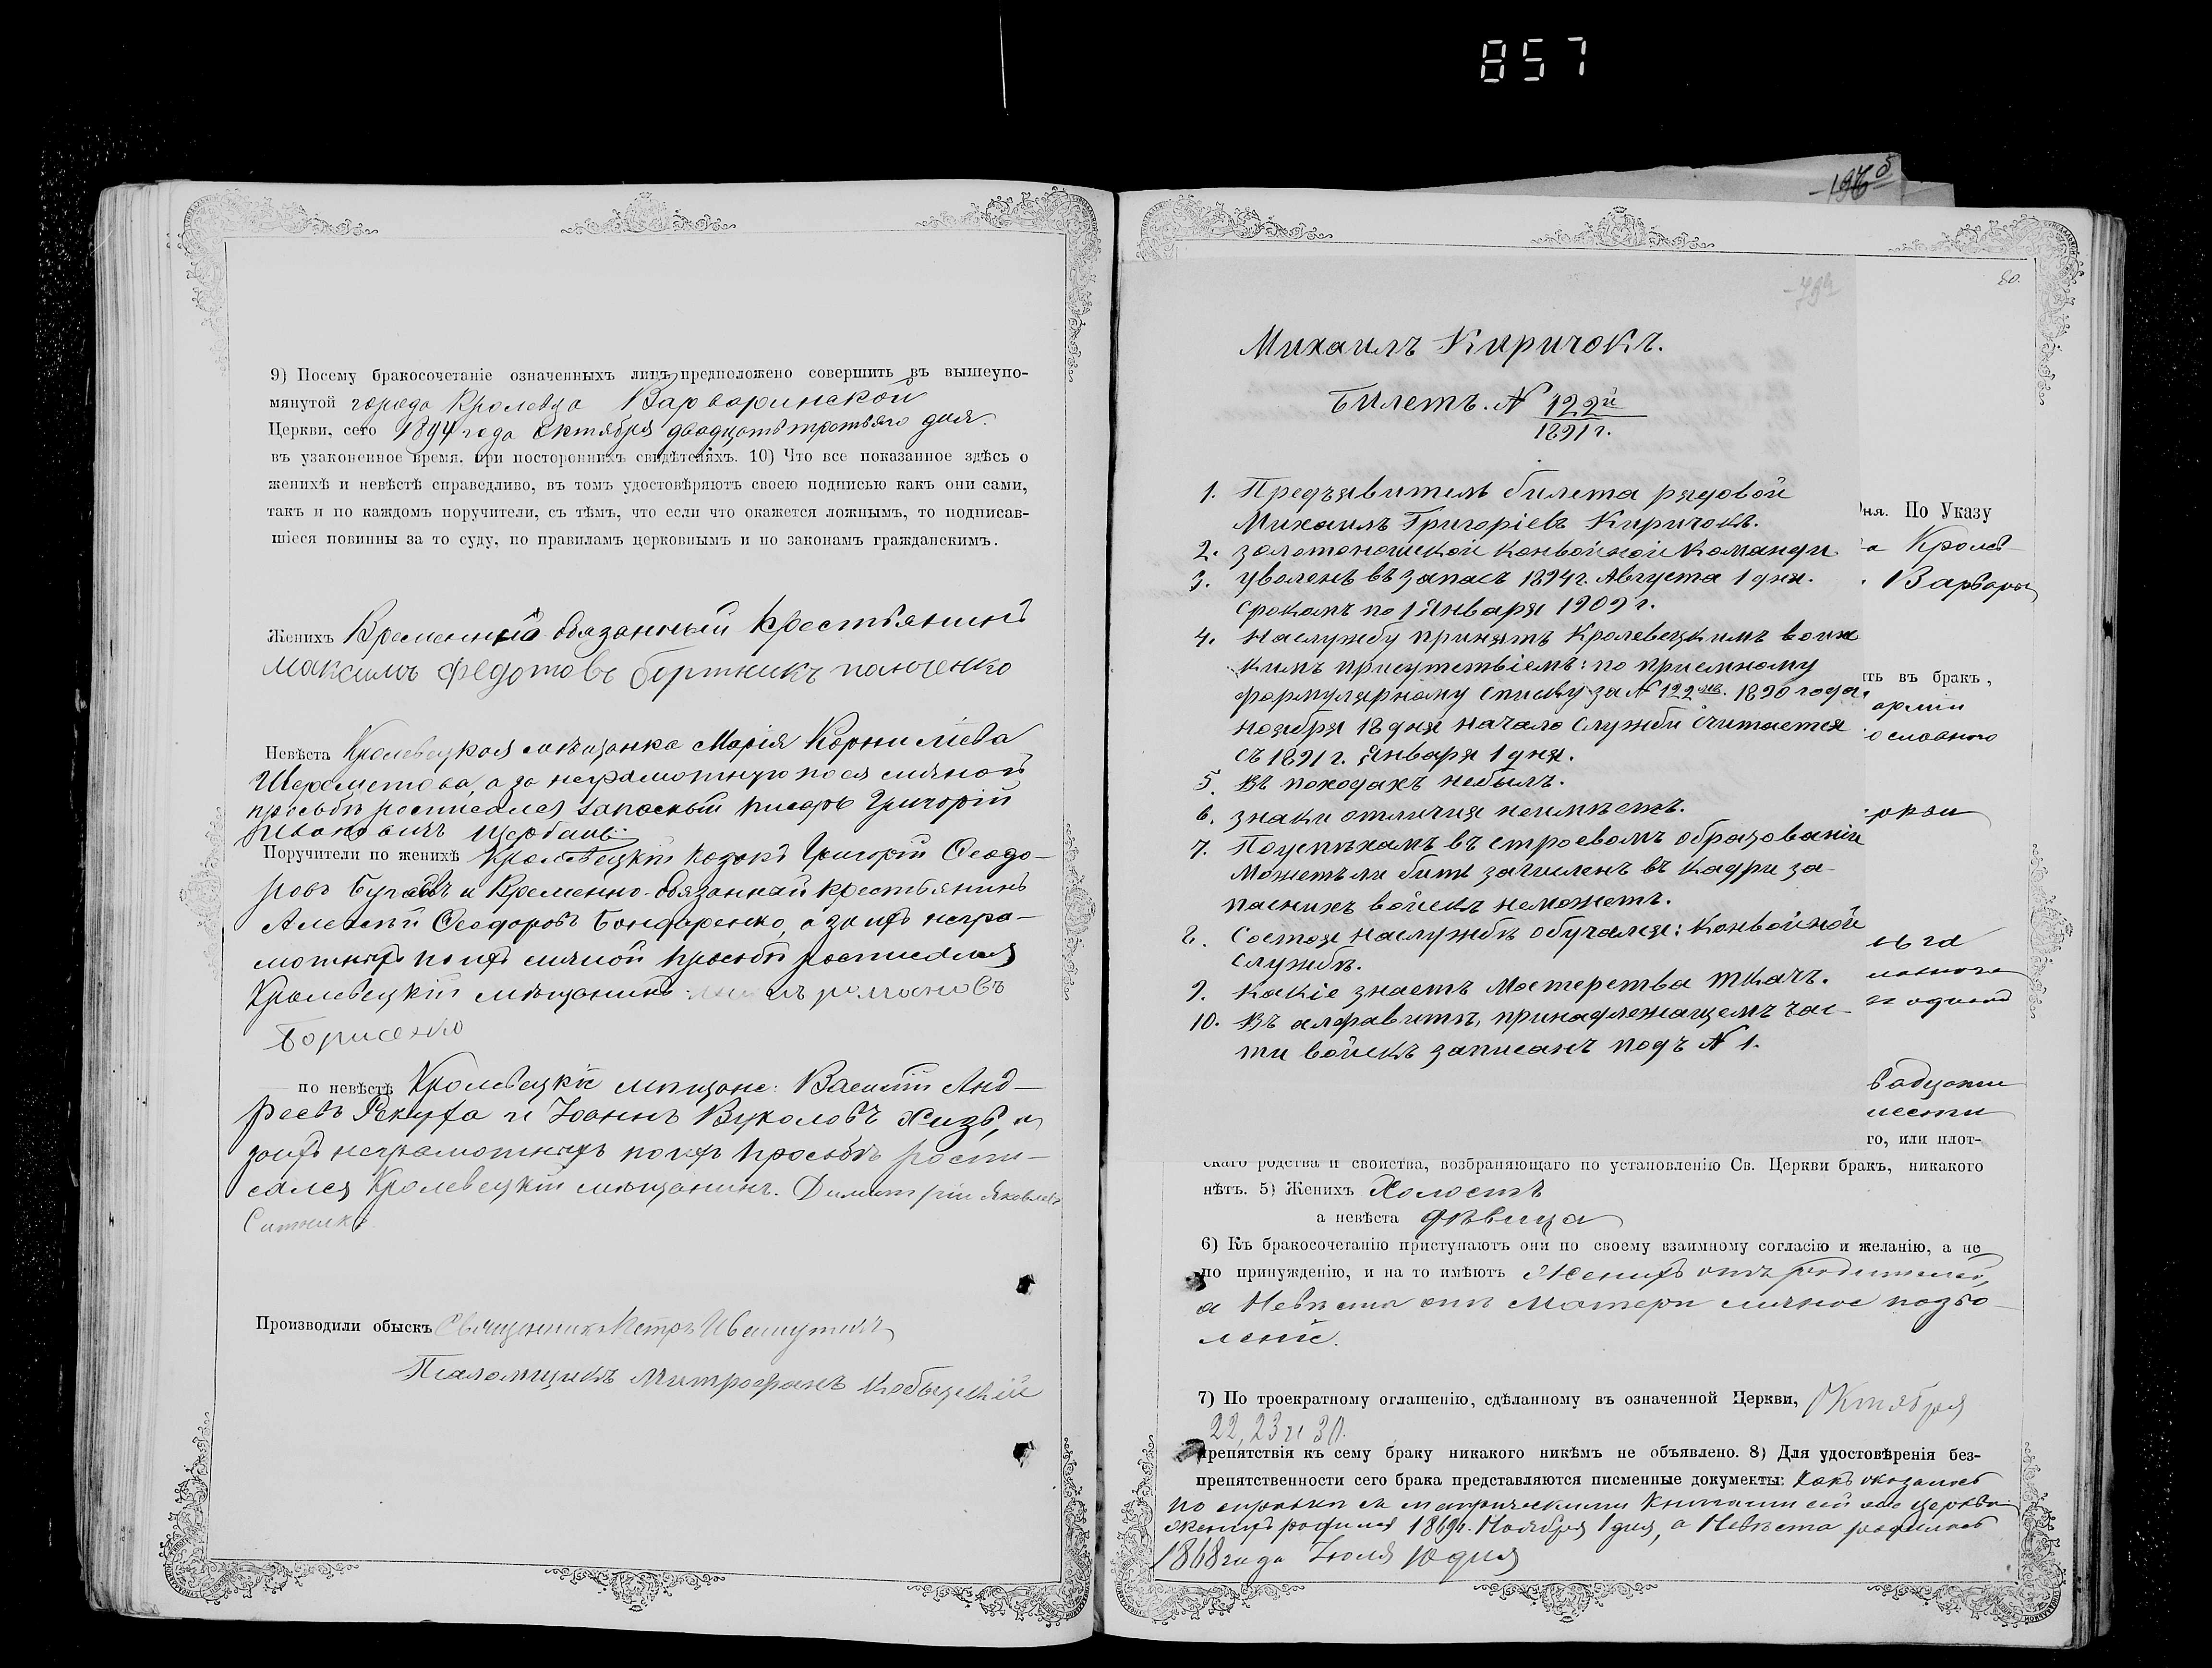 857
9) Посему бракосочетаніе означенныхъ лицъ предположено совершить въ вышеупо-
мянутой города Кролевца Варваринской
Церкви, сего 1894 года Октября двадцать третьяго дня.
въ узаконенное время, при постороннихъ свидѣтеляхъ. 10) Что все показанное здѣсь о
женихѣ и невѣстѣ справедливо, въ томъ удостовѣряютъ своею подписью какъ они сами,
такъ и по каждомъ поручители, съ тѣмъ, что если что окажется ложнымъ, то подписав-
шіеся повинны за то суду, по правиламъ церковнымъ и по законамъ гражданскимъ.
Женихъ Временно обязанный крестьянинъ
Максимъ Федотовъ бортникъ панченко
Невѣста Кролевецкая мѣщанка Марія Корниліева
Шереметова, а за неграмотную по ея личной
просьбѣ росписался запасный писарь Григорій
Ивановичъ Щербань
Поручители по женихѣ Кролевецкій козакъ Григорій Ѳеодо-
ровъ и Временно-обязанный крестьянинъ
Алексѣй Ѳеодоровъ Бондаренко, а за ихъ негра-
мотныхъ по ихъ личной просьбѣ росписался
Кролевецкій мѣщанинъ романовъ
Борисенко
по невѣстѣ Кролевецкіе мѣщане: Василій Анд-
реевъ Рекуха и Іоаннъ Вуколовъ Хизъ, а
за ихъ неграмотныхъ по ихъ просьбѣ роспи-
сался Кролевецкій мѣщанинъ. Димитрій Яковлевъ
Ситникъ
Производили обыскъ Священникъ Петръ
Псаломщикъ Митрофанъ Кобыцкій
80.
Михаилъ Киричокъ.
Билетъ. № 122й
1891 г.
1. Предъявитель билета рядовой
Михаилъ Григоріевъ Киричокъ.
2. Золотоношской Конвойной Команди
3. Уволенъ въ запасъ 1894 г. Августа 1 дня.
срокомъ по 1 Января 1909 г.
4. На службу принятъ Кролевецкимъ воин
кимъ присутствіемъ: по приемному
формулярному списку за № 122мъ. 1890 года
ноября 18 дня начало службы считается
съ 1891 г. Января 1 дня.
5. Въ походахъ небылъ.
6. знаки отличія неимѣетъ.
7. По успѣхамъ въ строевомъ образованіи
Можетъ ли быть зачисленъ въ кадри за-
пасныхъ войскъ неможетъ.
8. Состоя на службѣ обучался: Конвойной
службѣ.
9. Какіе знаетъ мастерства ткачъ.
10. Въ алфавитѣ, принадлежащемъ час-
ти войскъ записанъ подъ № 1.
дня. По Указу
а Кролев
Варвары
ть въ бракъ,
арміи
ославного
го, или плот-
скаго родства и свойства, возбраняющаго по установленію Св. Церкви бракъ, никакого
нѣтъ. 5) Женихъ Холостъ
а невѣста дѣвица
6) Къ бракосочетанію приступаютъ они по своему взаимному согласію и желанію, а не
по принужденію, и на то имѣютъ Женихъ отъ родителей,
а Невѣста отъ матери личное позво-
леніе.
7) По троекратному оглашенію, сдѣланному въ означенной Церкви, Октября
22, 23 и 30.
препятствія къ сему браку никакого никѣмъ не объявлено. 8) Для удостовѣренія без-
препятственности сего брака представляются писменные документы: Какъ оказалось
по справкѣ съ метрическими книгами сей же церкви
женихъ родился 1869 г. Ноября 1 дня, а Невѣста родилась
1868 года Іюля 10 дня